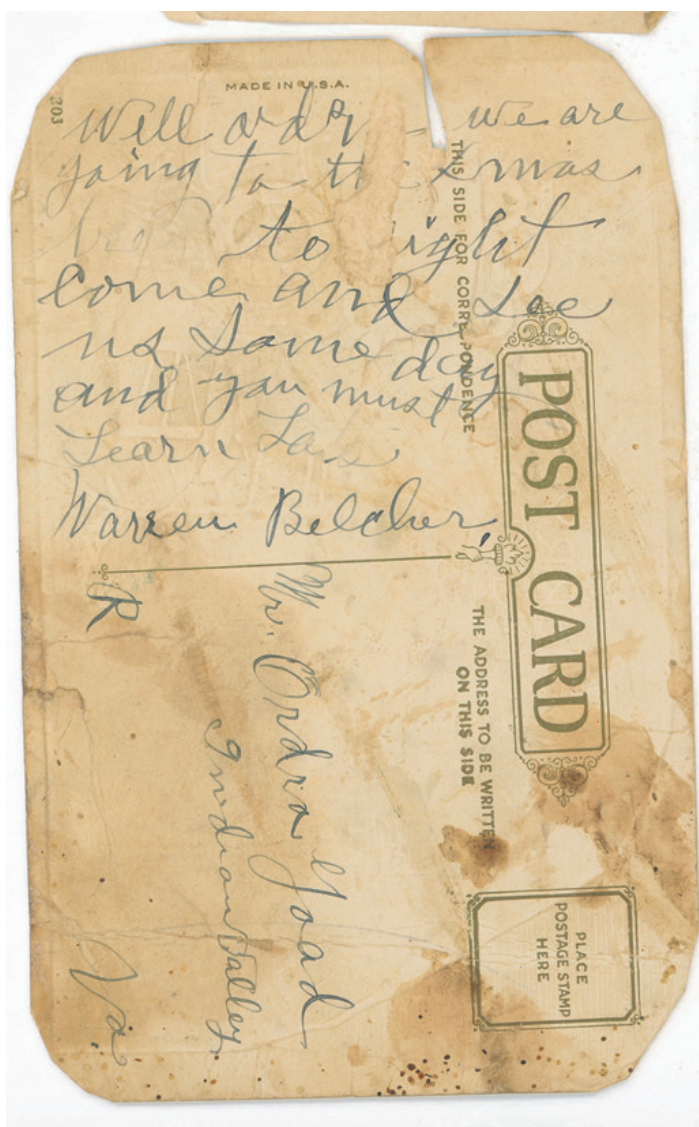 MADE IN U.S.A.
203
Well - we are
going to Xmas
to ight
come and see
us some day
and you must
Learn
Warren Belcher,
THIS SIDE FOR CORRE PONDENCE
POST CARD
THE ADDRESS TO BE WRITTEN
ON THIS SIDE
PLACE
POSTAGE STAMP
HERE
Mr. Ordra Goad
Indian Valley
Va
R